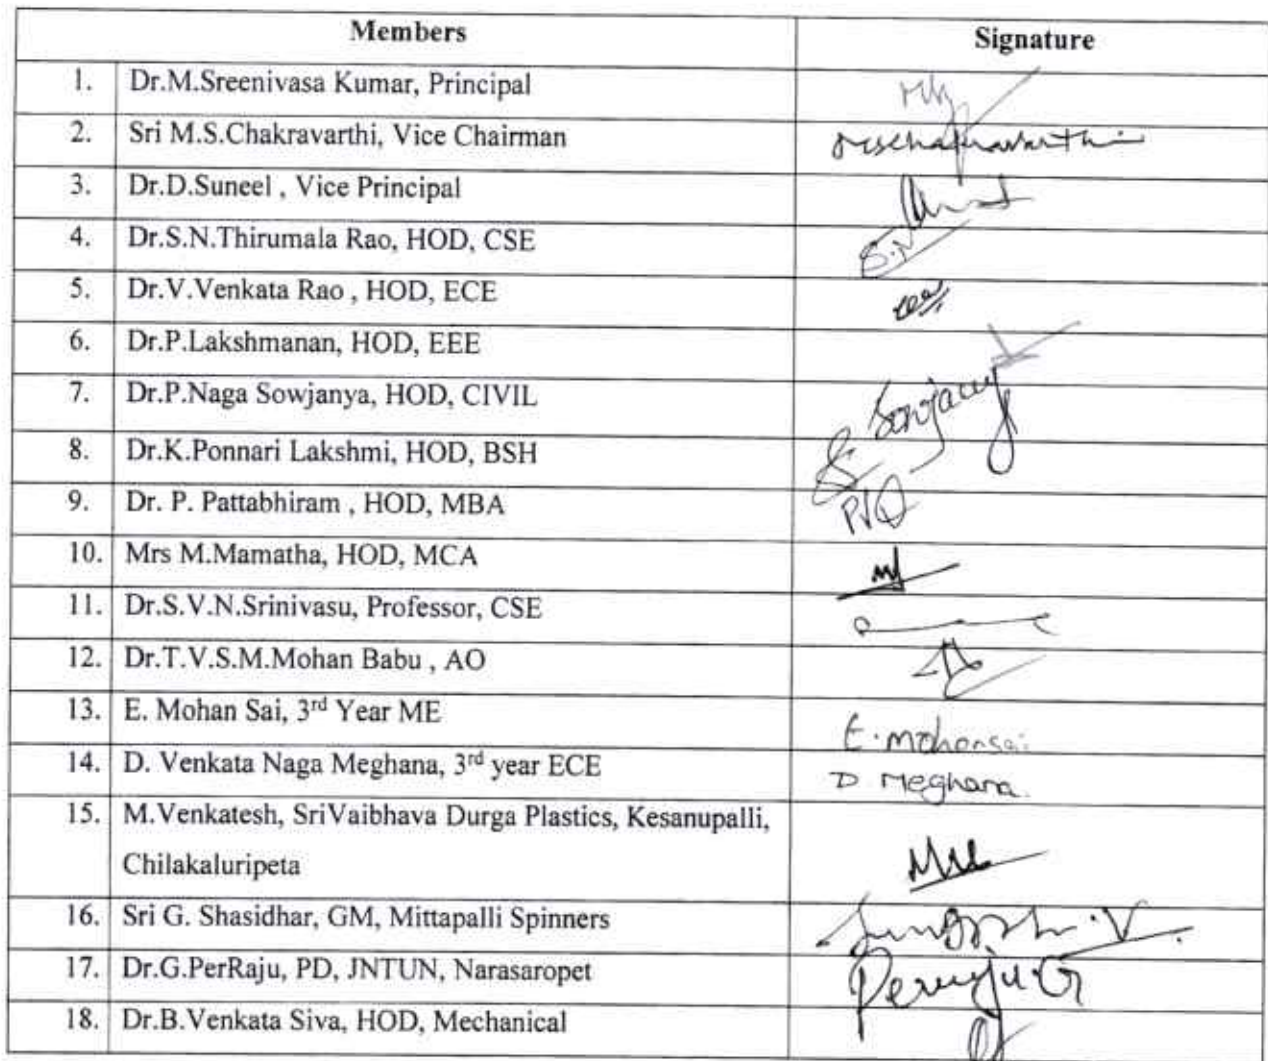 Members Signature
1. Dr.M.Sreenivasa Kumar, Principal
2. Sri M.S.Chakravarthi, Vice Chairman mschakravarthi
3. Dr.D.Suneel , Vice Principal
4. Dr.S.N.Thirumala Rao, HOD, CSE S.N
5. Dr.V.Venkata Rao , HOD, ECE
6. Dr.P.Lakshmanan, HOD, EEE
7. Dr.P.Naga Sowjanya, HOD, CIVIL
8. Dr.K.Ponnari Lakshmi, HOD, BSH
9. Dr. P. Pattabhiram , HOD, MBA
10. Mrs M.Mamatha, HOD, MCA
11. Dr.S.V.N.Srinivasu, Professor, CSE
12. Dr.T.V.S.M.Mohan Babu , AO
13. E. Mohan Sai, 3rd Year ME E. mohansai
14. D. Venkata Naga Meghana, 3rd year ECE D. Meghana.
15. M.Venkatesh, SriVaibhava Durga Plastics, Kesanupalli,
Chilakaluripeta
16. Sri G. Shasidhar, GM, Mittapalli Spinners
17. Dr.G.PerRaju, PD, JNTUN, Narasaropet Perraju G
18. Dr.B.Venkata Siva, HOD, Mechanical